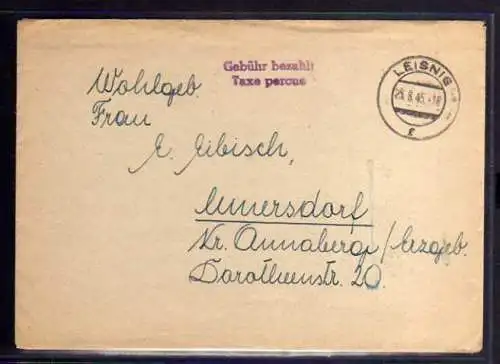 Gebühr bezahlt
Taxe percue
LEISNIG
25.8.45.-18
f
Wohlgeb.
Frau
E. Eibisch,
Wiesersdorf
Kr. Annaberg/Erzgeb.
Dorotheenstr. 20.